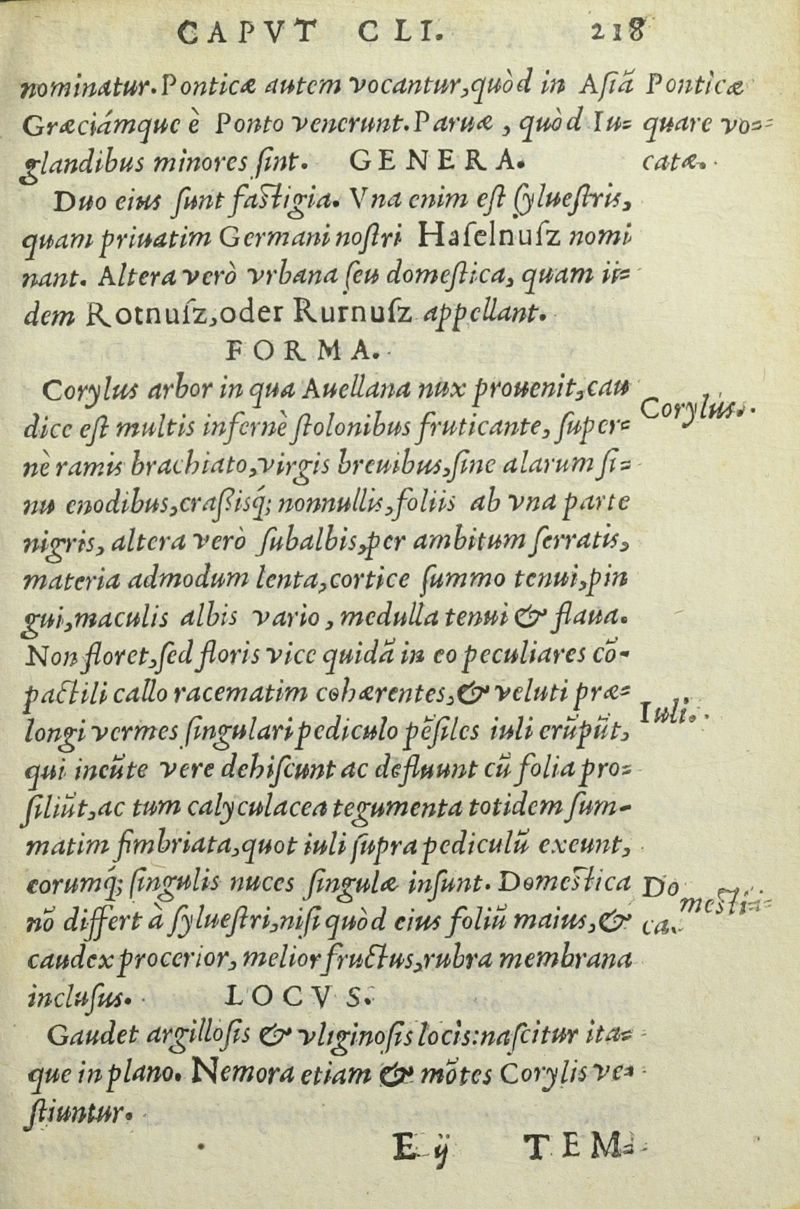 CAPVT CLI. 218
nominatur. Ponticæ autem vocantur, quòd in Asiã
Græciámque è Ponto venerunt. Paruæ, quòd Iu=
glandibus minores sint. GENERA.
Ponticæ
quare vo=
catæ.
Duo eius sunt fastigia. Vna enim est syluestris,
quam priuatim Germani nostri Haselnusz nomi
nant. Altera verò vrbana seu domestica, quam ii=
dem Rotnusz, oder Rurnusz appellant.
FORMA.
Corylus arbor in qua Auellana nux prouenit, cau
dice est multis infernè stolonibus fruticante, super=
nè ramis brachiato, virgis breuibus, sine alarum si=
nu enodibus, crassisq́; nonnullis, foliis ab vna parte
nigris, altera verò subalbis, per ambitum serratis,
materia admodum lenta, cortice summo tenui, pin
gui, maculis albis vario, medulla tenui & flaua.
Corylus.
Non floret, sed floris vice quidã in eo peculiares cõ-
pactili callo racematim cohærentes, & veluti præ=
longi vermes singulari pediculo pẽsiles iuli erũpũt,
qui ineũte vere dehiscunt ac defluunt cũ folia pro=
siliũt, ac tum calyculacea tegumenta totidem sum-
matim fimbriata, quot iuli supra pediculũ exeunt,
Iuli.
eorumq́; singulis nuces singulæ insunt. Domestica
nõ differt à syluestri, nisi quòd eius foliũ maius, &
caudex procerior, melior fructus, rubra membrana
inclusus. LOCVS.
Do
mesti=
ca.
Gaudet argillosis & vliginosis locis: nascitur ita=
que in plano. Nemora etiam & mõtes Corylis ve=
stiuntur.
E ij TEM=